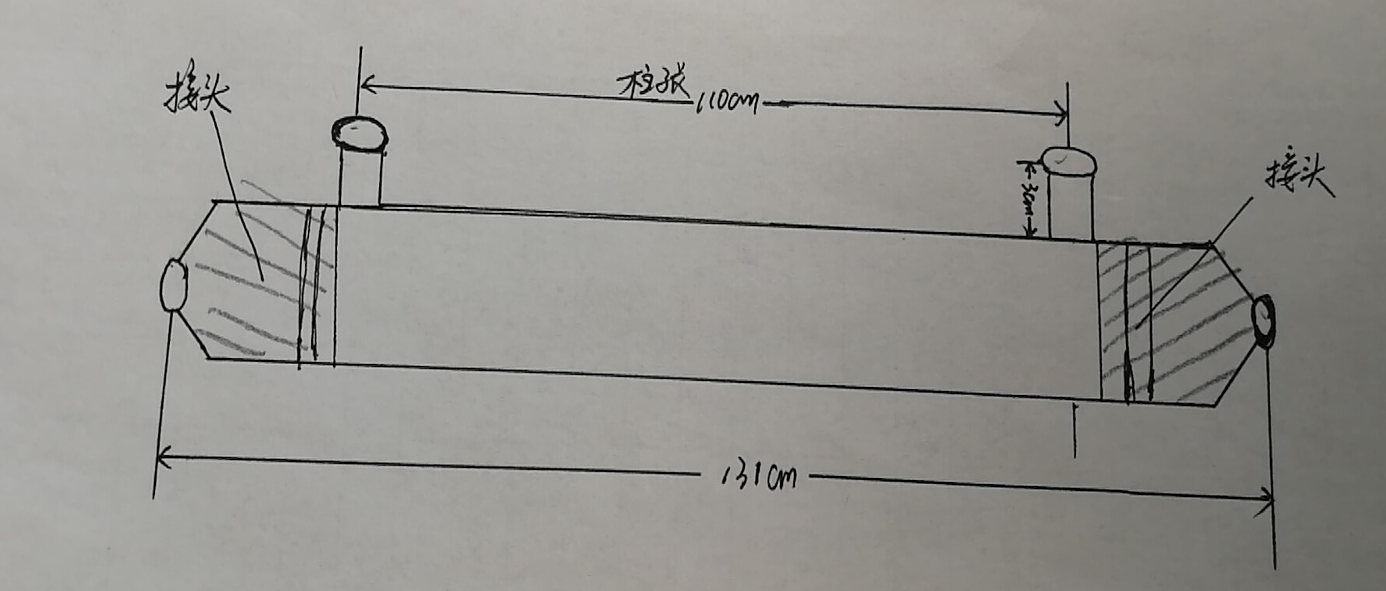 接头
110cm
3cm
接头
131cm